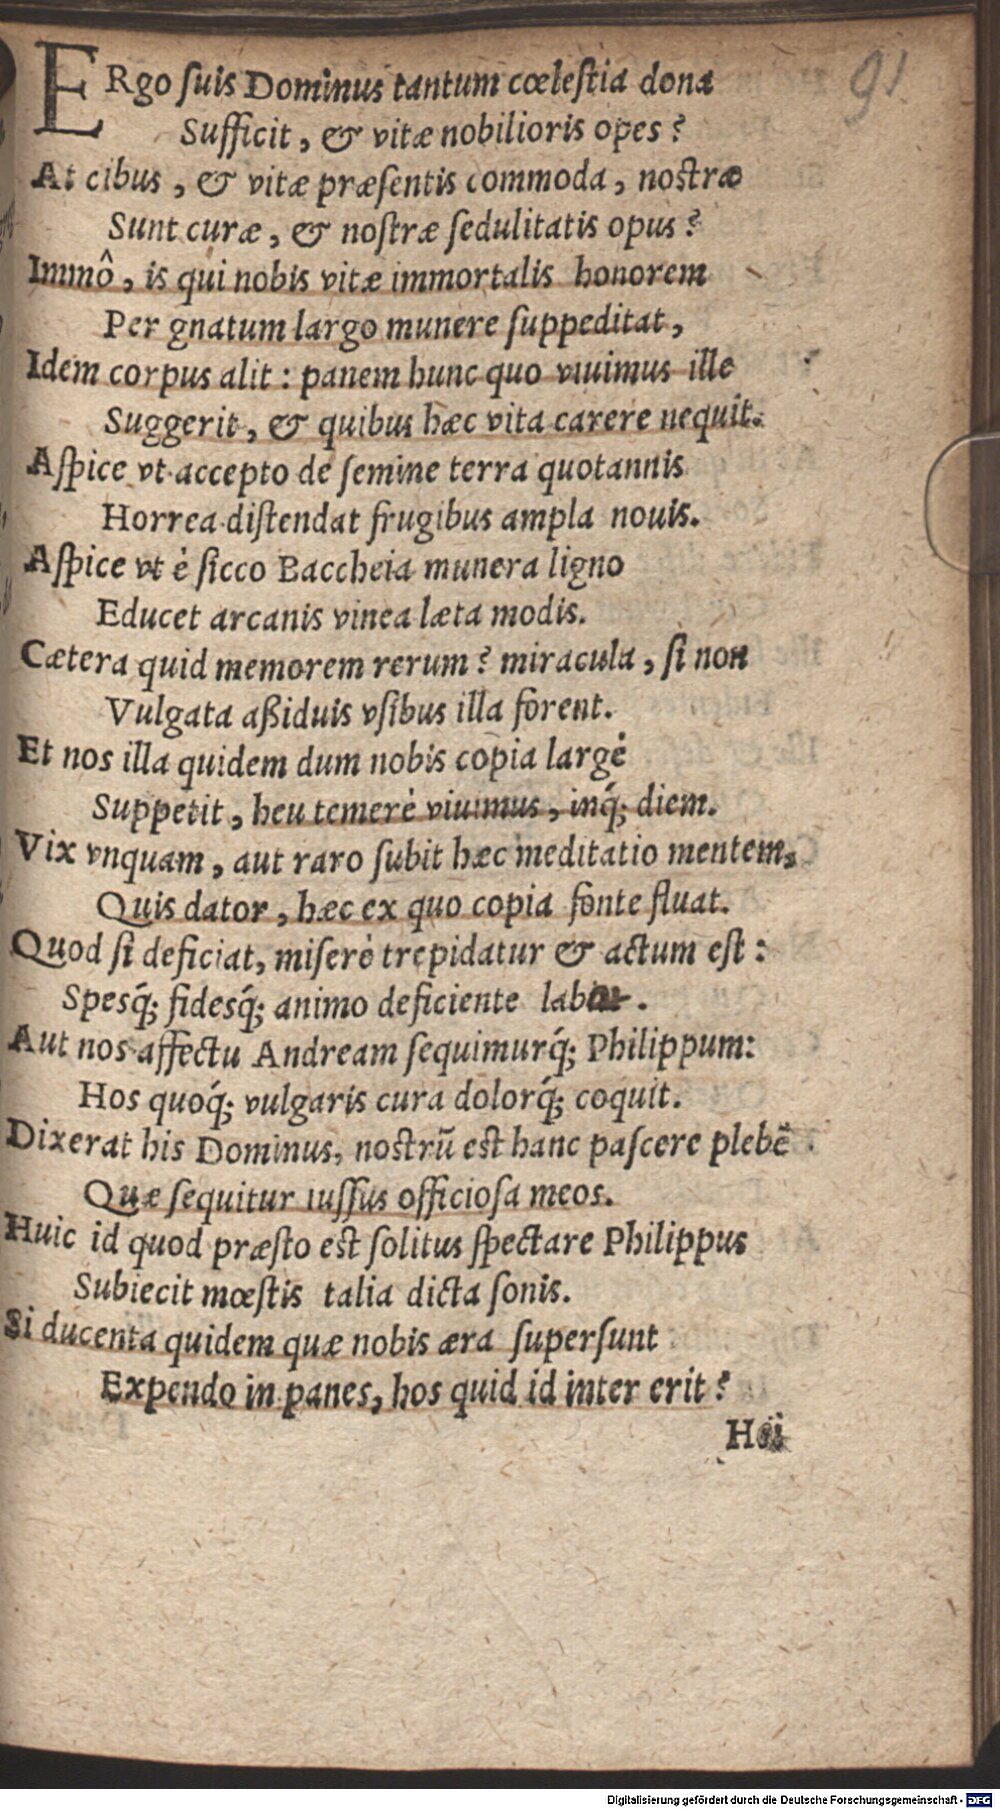 91
ERgo ſuis Dominus tantum cœleſtia dona
Sufficit, & vitæ nobilioris opes?
At cibus, & vitæ præſentis commoda, noſtræ
Sunt curæ, & noſtræ ſedulitatis opus?
Immô, is qui nobis vitæ immortalis honorem
Per gnatum largo munere ſuppeditat,
Idem corpus alit: panem hunc quo viuimus ille
Suggerit, & quibus hæc vita carere nequit.
Aſpice vt accepto de ſemine terra quotannis
Horrea diſtendat frugibus ampla nouis.
Aſpice vt è ſicco Baccheia munera ligno
Educet arcanis vinea læta modis.
Cætera quid memorem rerum? miracula, ſi non
Vulgata aßiduis vſibus illa forent.
Et nos illa quidem dum nobis copia largè
Suppetit, heu temerè viuimus, inq́; diem.
Vix vnquam, aut raro ſubit hæc meditatio mentem,
Quis dator, hæc ex quo copia fonte fluat.
Quod ſi deficiat, miſerè trepidatur & actum eſt:
Spesq́; fidesq́; animo deficiente
Aut nos affectu Andream ſequimurq́; Philippum:
Hos quoq́; vulgaris cura dolorq́; coquit.
Dixerat his Dominus, noſtrũ eſt hanc paſcere plebẽ
Quæ ſequitur iuſſus officioſa meos.
Huic id quod præſto eſt ſolitus ſpectare Philippus
Subiecit mœſtis talia dicta ſonis.
Si ducenta quidem quæ nobis æra ſuperſunt
Expendo in panes, hos quid id inter erit?
Digitalisierung gefördert durch die Deutsche Forschungsgemeinschaft - DFG